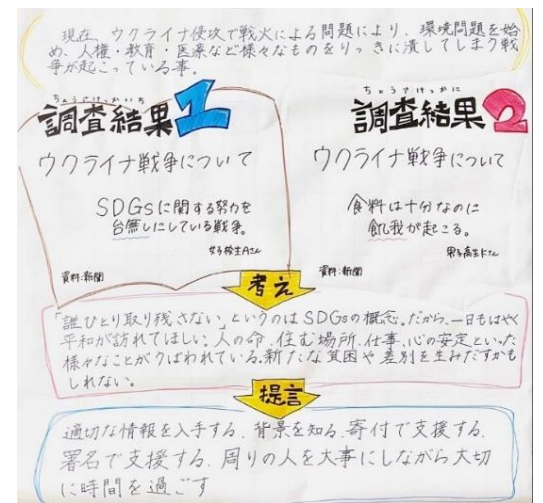 現在、ウクライナ侵攻で戦火による問題により、環境問題を始
め、人権・教育・医療など様々なものをりっきに潰してしまう戦
争が起こっている事。
ちょうさけっかいち
調査結果1
ウクライナ戦争について
SDGsに関する努力を
台無しにしている戦争。
女子校生Aさん
資料:新聞
ちょうさけっかに
調査結果2
ウクライナ戦争について
食料は十分なのに
飢我が起こる。
男子高生Kさん
資料:新聞
考え
「誰ひとり取り残さない」というのはSDGsの概念。だから、一日もはやく
平和が訪れてほしい。人の命、住む場所、仕事、心の安定といった
様々なことがうばわれている。新たな貧困や差別を生みだすかも
しれない。
提言
適切な情報を入手する、背景を知る、寄付で支援する、
署名で支援する、周りの人を大事にしながら大切
に時間を過ごす